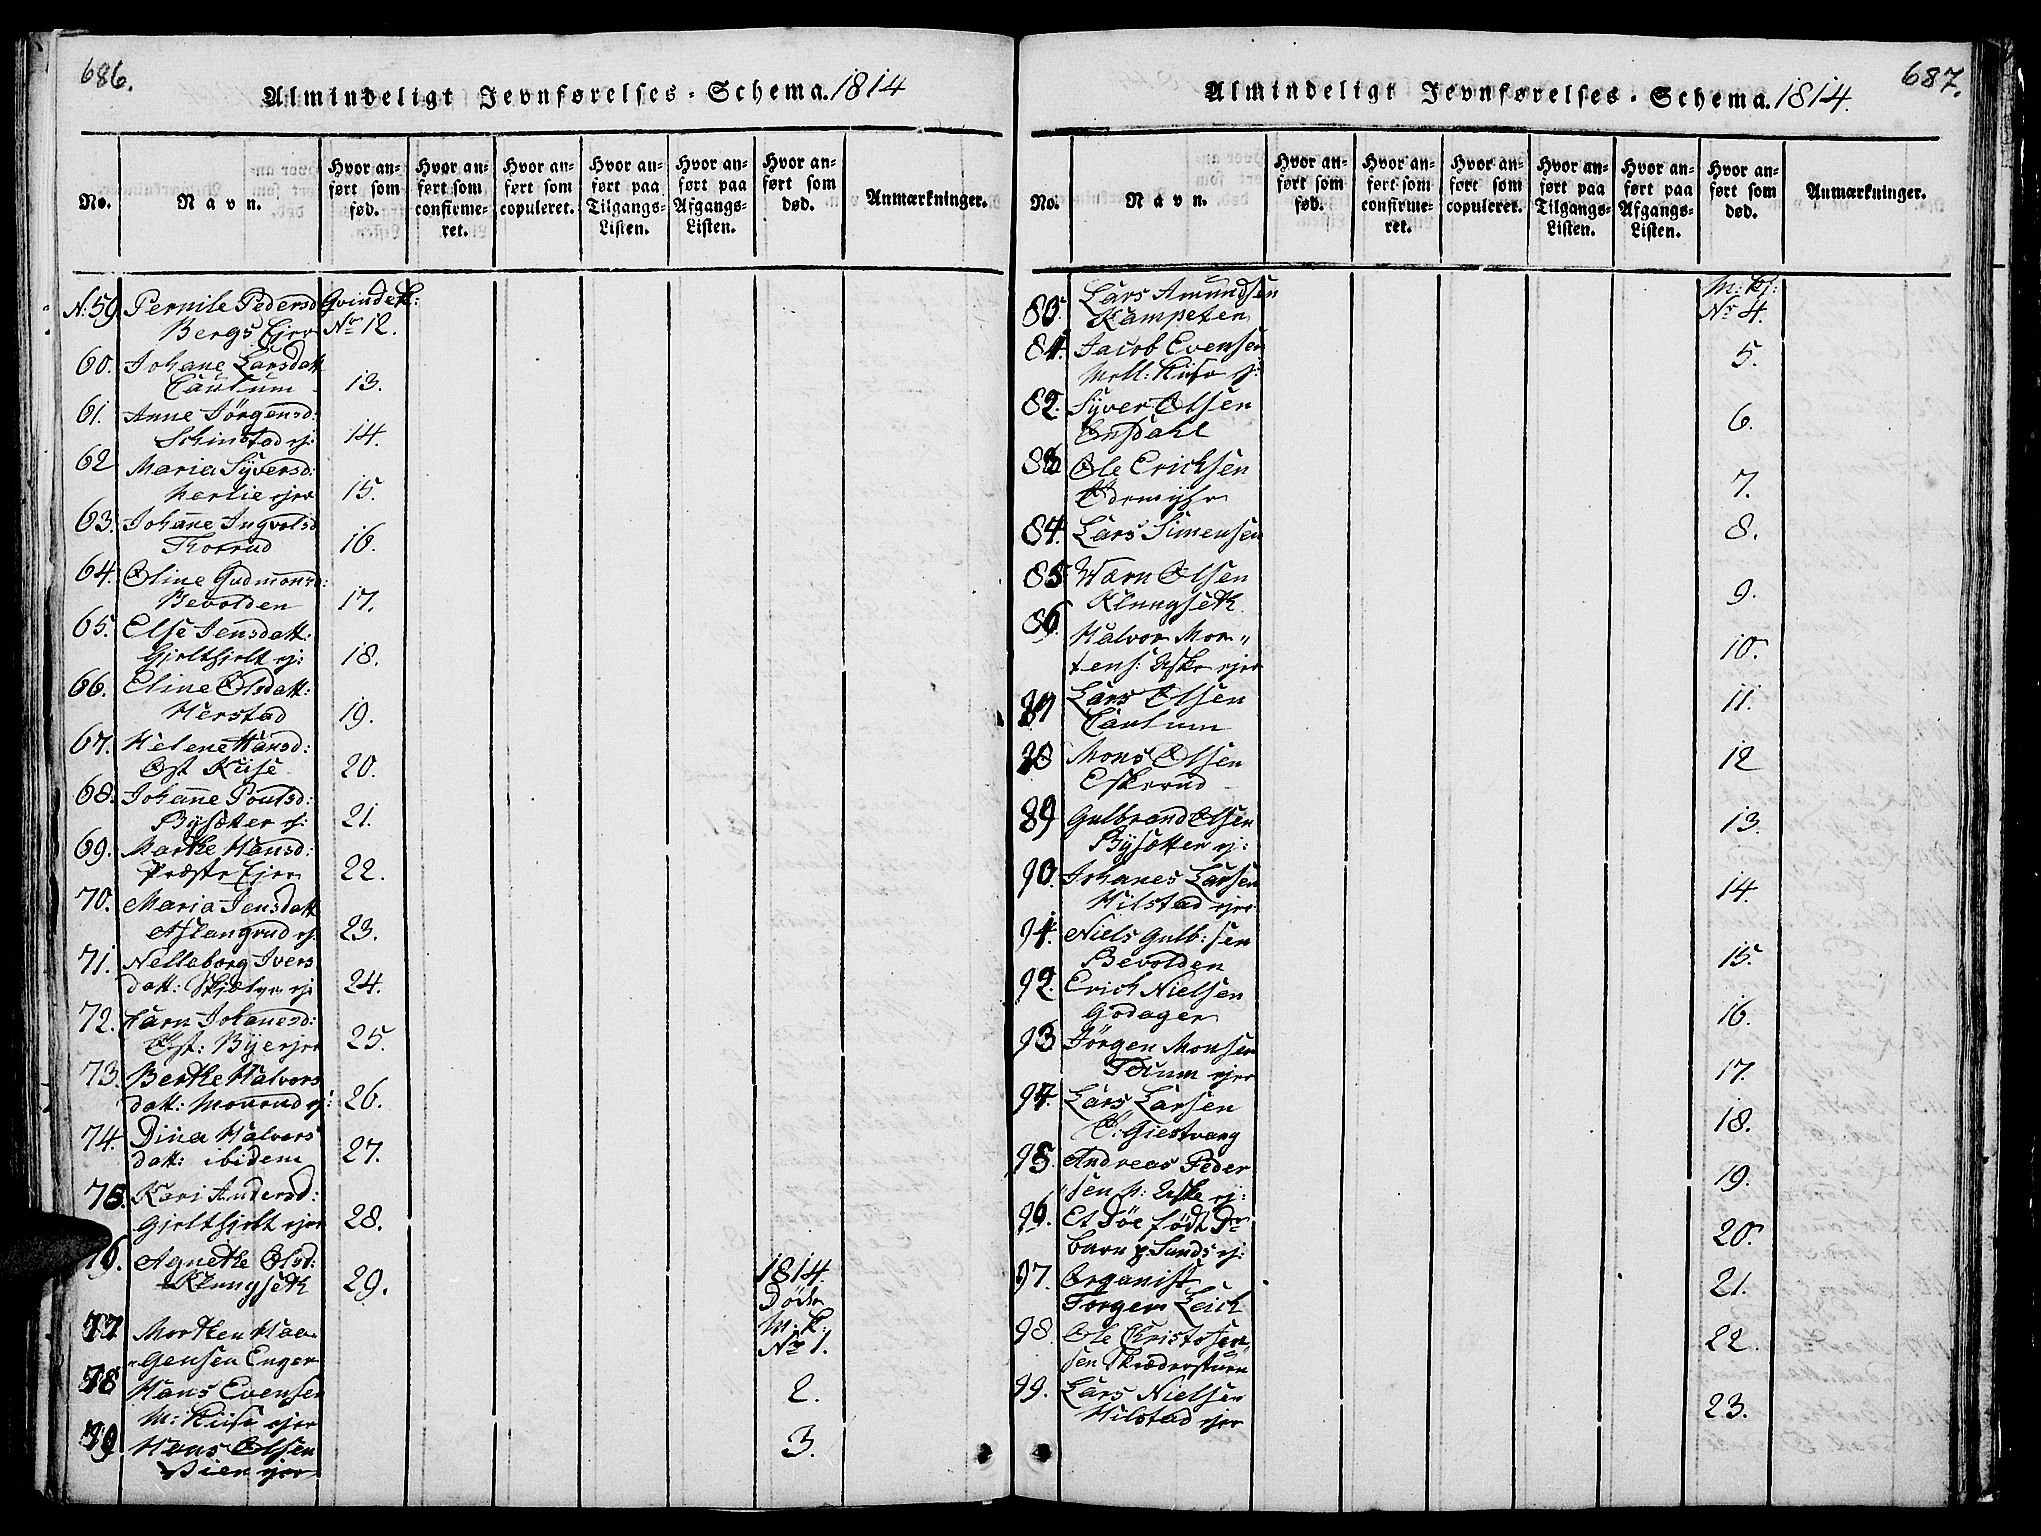 686.
Almindeligt Jevnførelses-Schema. 1814
No.
Navn.
Hvor anført som fød.
Hvor anført som confirmeret.
Hvor anført som copuleret.
Hvor anført paa Tilgangs-Listen.
Hvor anført paa Afgangs-Listen.
Hvor anført som død.
Anmærkninger.
N: 59. Pernile Pedersd Qvindek:
Bergs Ejer No 12.
60. Johane Larsdatt
Caulum 13.
61. Anne Jörgensd:
Schinstad ej: 14.
62 Maria Syversd:
Herlie ejer 15.
63. Johanne Ingvolsd
Thorrud 16.
64. Oline Gudmonsd:
Bevolden 17.
65. Else Jensdatt:
Gjeltfjelt ej: 18.
66. Eline Olsdatt:
Herstad 19.
67. Helene Hansd:
Øst Kise 20.
68. Johanne Poulsd:
Bysætter ej: 21.
69. Marthe Hansd:
Præste Ejer 22.
70. Maria Jensdatt
Aslangrud ej: 23.
71. Nelleborg Ivers
datt: Skjelve ej: 24.
72. Karn Johanesd:
Øst: Bye ejer 25.
73. Berthe Halvors
datt: Monrud ej: 26.
74. Dina Halvors
datt: ibidem 27.
75. Kari Andersd:
Gjeltfjelt ejer 28.
76. Agnethe Olsd:
Klungseth 29.
1814.
Døde
M: k:
77 Morthen Haa- No 1.
gensen Enger
78 Hans Evensen 2.
M: Kiise ejer
79 Hans Olsen 3.
ejer
687.
Almindeligt Jevnførelses-Schema. 1814.
No.
Navn.
Hvor anført som fød.
Hvor anført som confirmeret.
Hvor anført som copuleret.
Hvor anført paa Tilgangs-Listen.
Hvor anført paa Afgangs-Listen.
Hvor anført som død.
Anmærkninger.
80. Lars Amundsen M: kj:
Kampeten No 4.
81. Jacob Evensen 5.
Mell: Kise ej:
82. Syver Olsen 6.
Onsdahl
83 Ole Erichsen 7.
Ødemyhr
84. Lars Simensen 8.
85 Karn Olsen 9.
Klungseth
86. Halvor Mor- 10.
tens: Aske ejer
87 Lars Olsen 11.
Caulum
88 Mons Olsen 12
Eskerud
89 Gulbrand Olsen 13.
Bysætter ej:
90. Johanes Larsen 14.
Hilstad ejer
91. Niels Gulb:sen 15.
Bevolden
92. Erich Nielsen 16.
Godager
93 Jörgen Monsen 17.
Tocum ejer
94. Lars Larsen 18.
Ö: Giestvang
95. Andreas Peder 19.
sen N: Aske ej:
96. Et Döe födt Dr 20.
barn p. Sunds ej:
97. Organist 21.
Torgers Leich
98. Ole Christofer 22.
sen Skræderstuen
99. Lars Nielsen 23.
Hilstad ejer